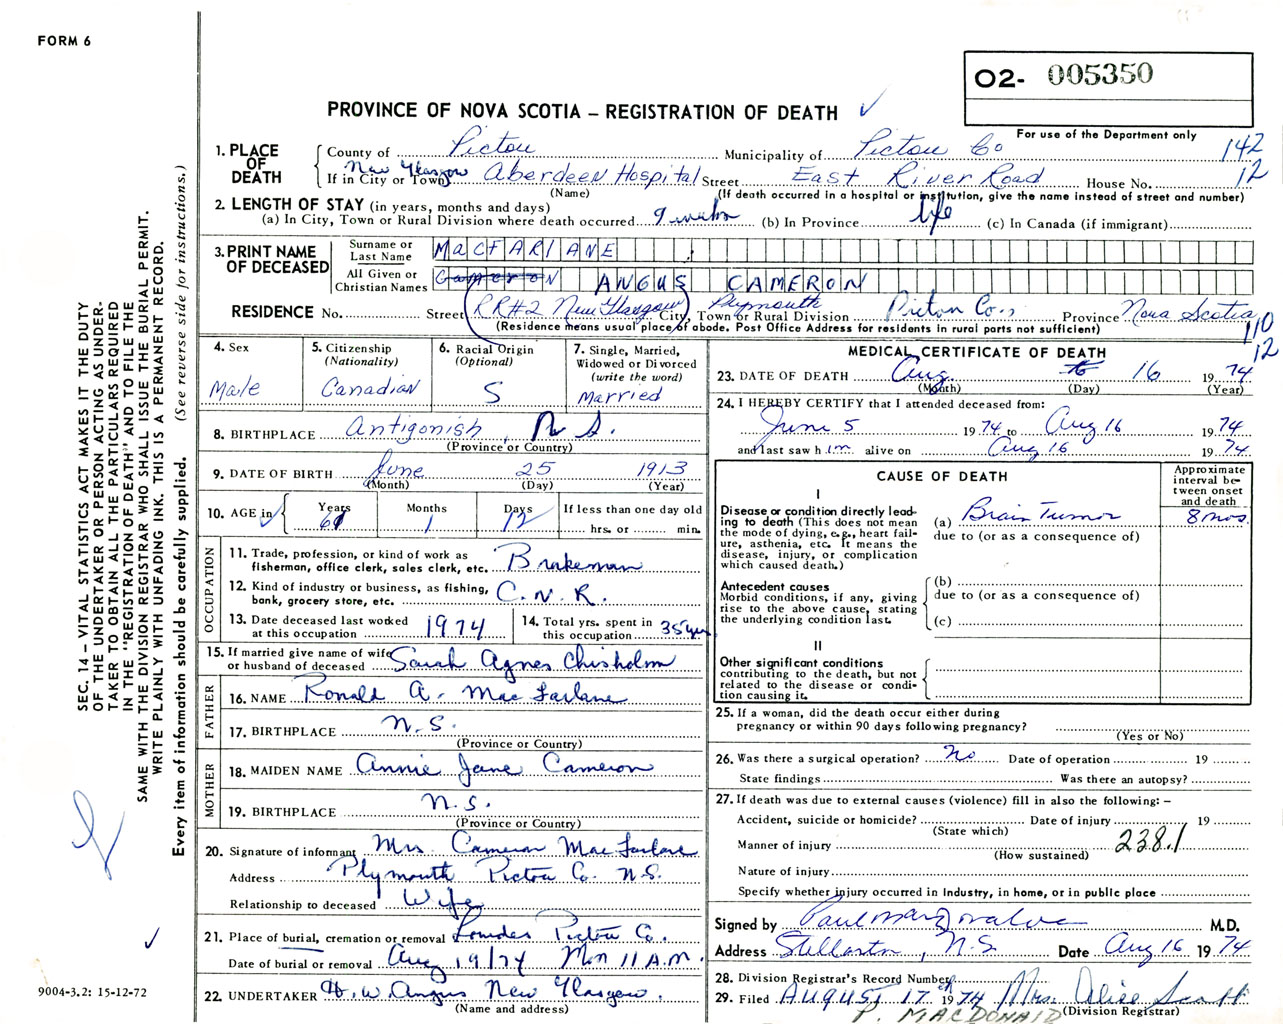 FORM 6
O2- 005350
PROVINCE OF NOVA SCOTIA – REGISTRATION OF DEATH ✓
For use of the Department only
142
12
1. PLACE OF DEATH
County of Pictou Municipality of Pictou Co
If in City or Town New Glasgow Aberdeen Hospital Street East River Road House No.
(Name) (If death occurred in a hospital or institution, give the name instead of street and number)
2. LENGTH OF STAY (in years, months and days)
(a) In City, Town or Rural Division where death occurred 9 weeks (b) In Province life (c) In Canada (if immigrant)
3. PRINT NAME OF DECEASED
Surname or Last Name MacFARLANE
All Given or Christian Names Cameron ANGUS CAMERON
RESIDENCE No. Street RR#2 New Glasgow City, Town or Rural Division Plymouth Picton Co., Province Nova Scotia
(Residence means usual place of abode. Post Office Address for residents in rural parts not sufficient)
110
12
4. Sex
Male
5. Citizenship (Nationality)
Canadian
6. Racial Origin (Optional)
S
7. Single, Married, Widowed or Divorced (write the word)
Married
8. BIRTHPLACE Antigonish, N.S.
(Province or Country)
9. DATE OF BIRTH June 25 1913
(Month) (Day) (Year)
10. AGE in Years Months Days If less than one day old
61 1 12 hrs. or min.
OCCUPATION
11. Trade, profession, or kind of work as fisherman, office clerk, sales clerk, etc. Brakeman
12. Kind of industry or business, as fishing, bank, grocery store, etc. C.N.R.
13. Date deceased last worked at this occupation 1974
14. Total yrs. spent in this occupation 35 yrs
15. If married give name of wife or husband of deceased Sarah Agnes Chisholm
FATHER
16. NAME Ronald A. MacFarlane
17. BIRTHPLACE N.S.
(Province or Country)
MOTHER
18. MAIDEN NAME Annie Jane Cameron
19. BIRTHPLACE N.S.
(Province or Country)
20. Signature of informant Mrs. Cameron MacFarlane
Address Plymouth Pictou Co. N.S.
Relationship to deceased Wife
21. Place of burial, cremation or removal Lourdes Pictou Co.
Date of burial or removal Aug 19/74 Mon 11 A.M.
22. UNDERTAKER H.W. Angus New Glasgow.
(Name and address)
MEDICAL CERTIFICATE OF DEATH
23. DATE OF DEATH Aug. 16 1974
(Month) (Day) (Year)
24. I HEREBY CERTIFY that I attended deceased from:
June 5 1974 to Aug 16 1974
and last saw him alive on Aug 16 1974.
CAUSE OF DEATH
Approximate interval between onset and death
I
Disease or condition directly leading to death (This does not mean the mode of dying, e.g., heart failure, asthenia, etc. It means the disease, injury, or complication which caused death.)
(a) Brain Tumor 8 mos.
due to (or as a consequence of)
Antecedent causes
Morbid conditions, if any, giving rise to the above cause, stating the underlying condition last.
(b)
due to (or as a consequence of)
(c)
II
Other significant conditions contributing to the death, but not related to the disease or condition causing it.
25. If a woman, did the death occur either during pregnancy or within 90 days following pregnancy?
(Yes or No)
26. Was there a surgical operation? No Date of operation 19
State findings Was there an autopsy?
27. If death was due to external causes (violence) fill in also the following: –
Accident, suicide or homicide? Date of injury 19
(State which)
Manner of injury 238.1
(How sustained)
Nature of injury
Specify whether injury occurred in Industry, in home, or in public place
Signed by Paul MacDonald M.D.
Address Stellarton, N.S. Date Aug 16 1974
28. Division Registrar's Record Number
29. Filed AUGUST 17th 1974 Mrs. Alice Scott
(Division Registrar)
P. MACDONALD
SEC. 14 – VITAL STATISTICS ACT MAKES IT THE DUTY
OF THE UNDERTAKER OR PERSON ACTING AS UNDER-
TAKER TO OBTAIN ALL THE PARTICULARS REQUIRED
IN THE "REGISTRATION OF DEATH" AND TO FILE THE
SAME WITH THE DIVISION REGISTRAR WHO SHALL ISSUE THE BURIAL PERMIT.
WRITE PLAINLY WITH UNFADING INK. THIS IS A PERMANENT RECORD.
Every item of information should be carefully supplied. (See reverse side for instructions.)
9004-3.2: 15-12-72